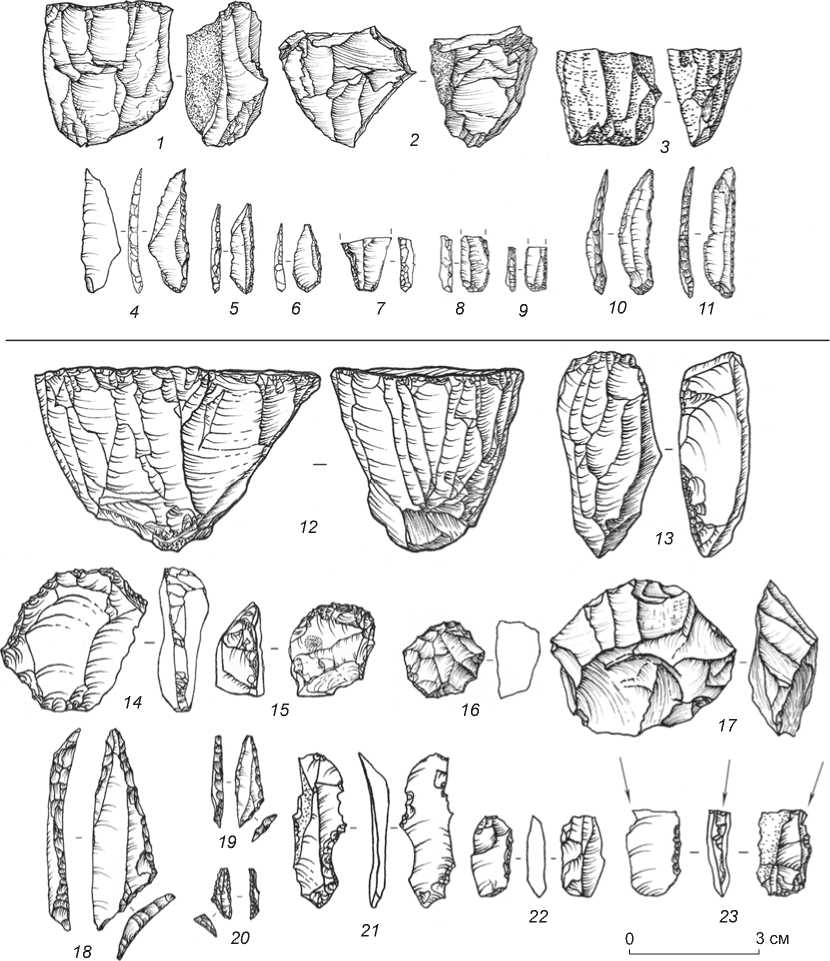 1 2 3
4 5 6 7 8 9 10 11
12 13
14 15 16 17
18 19 20 21 22 23
0 3 см